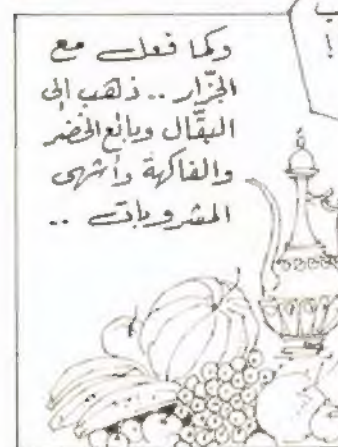 وكما فعل مع
الجزّار .. ذهب إلى
البقّال وبائع الخضر
والفاكهة وأشهى
المشروبات ..
!